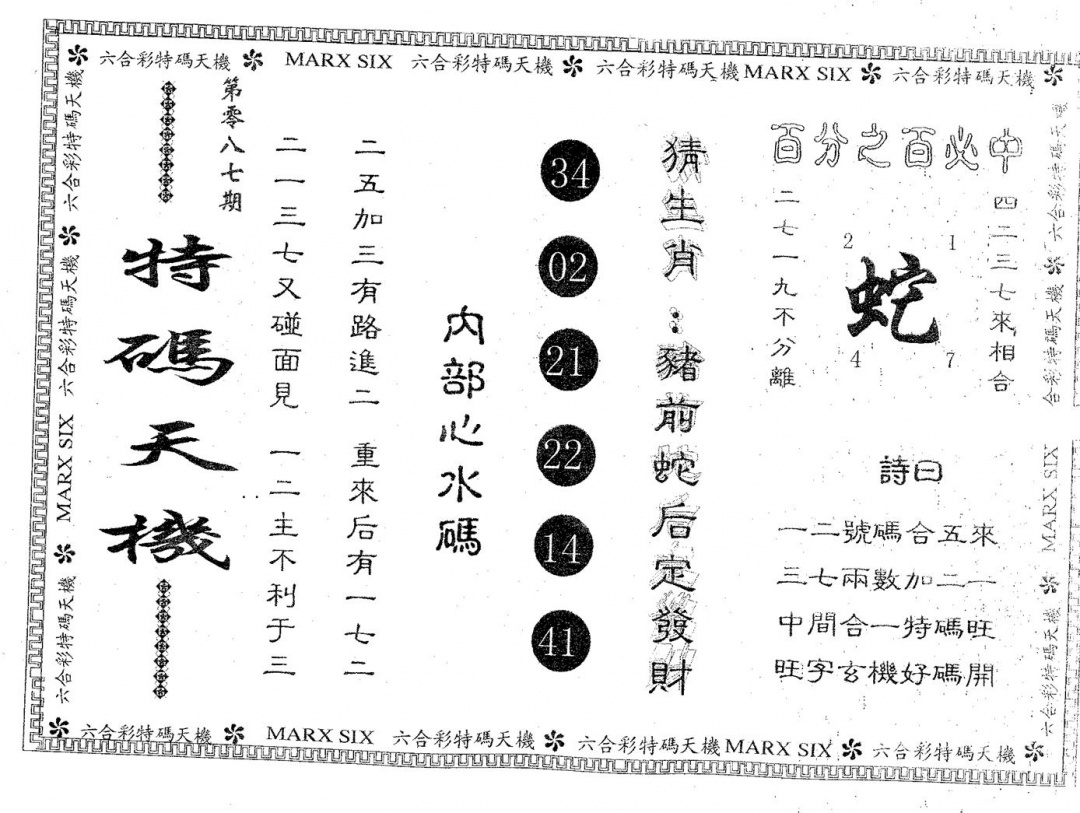 六合彩特碼天機 MARX SIX 六合彩特碼天機 六合彩特碼天機 MARX SIX 六合彩特碼天機
六合彩特碼天機
六合彩特碼天機
MARX SIX
六合彩特碼天機
第零八七期
特碼天機
二一三七又碰面見 一二主不利于三
二五加三有路進二 重來后有一七二
內部心水碼
34
02
21
22
14
41
猜生肖：豬前蛇后定發財
百分之百必中
二七一九不分離
2 1
蛇
4 7
四二三七來相合
詩曰
一二號碼合五來
三七兩數加二一
中間合一特碼旺
旺字玄機好碼開
六合彩特碼天機
合彩特碼天機
MARX SIX
六合彩特碼天機
六合彩特碼天機 MARX SIX 六合彩特碼天機 六合彩特碼天機 MARX SIX 六合彩特碼天機